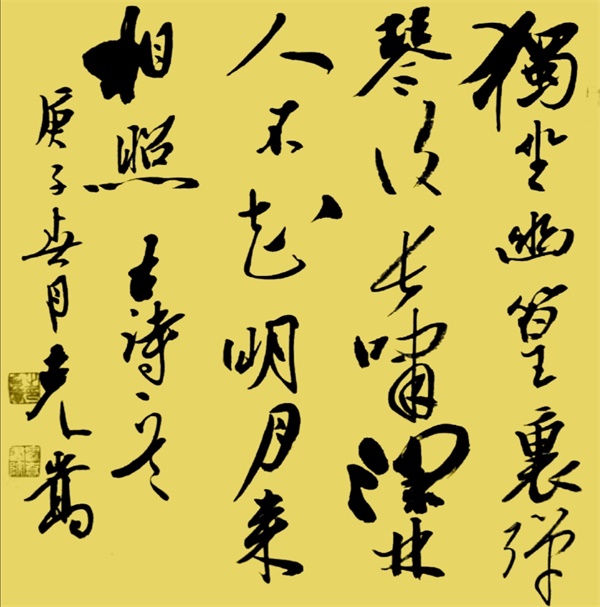 獨坐幽篁裏彈
琴復長嘯深林
人不知明月来
相照 古詩一首
庚子春月克嵩